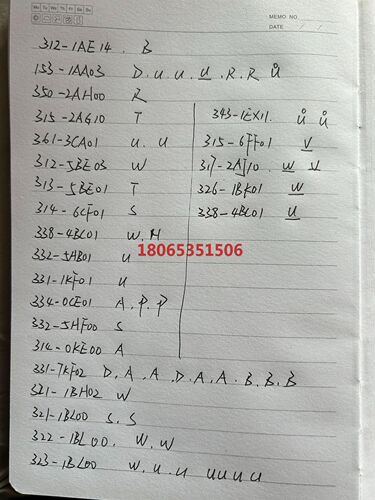 Mo Tu We Th Fr Sa Su
MEMO NO.
DATE / /
312-1AE14. B
153-1AA03 D. U. U. U. R. R Ů
350-2AH00 R
315-2AG10 T
361-3CA01 U. U
312-5BE03 W
313-5BE01 T
314-6CF01 S
338-4BC01 W. H
332-5HB01 U
331-1KF01 U
334-0CE01 A. P. P
332-5HF00 S
314-0KE00 A
343-1EX11. Ů Ů
315-6FF01 V
317-2AJ10. W V
326-1BK01 W
338-4BC01 U
18065351506
331-7KF02 D. A. A. D. A. A. B. B. B
321-1BH02 W
321-1BL00 S. S
322-1BL00. W. W
323-1BL00 W. U. U U U U U